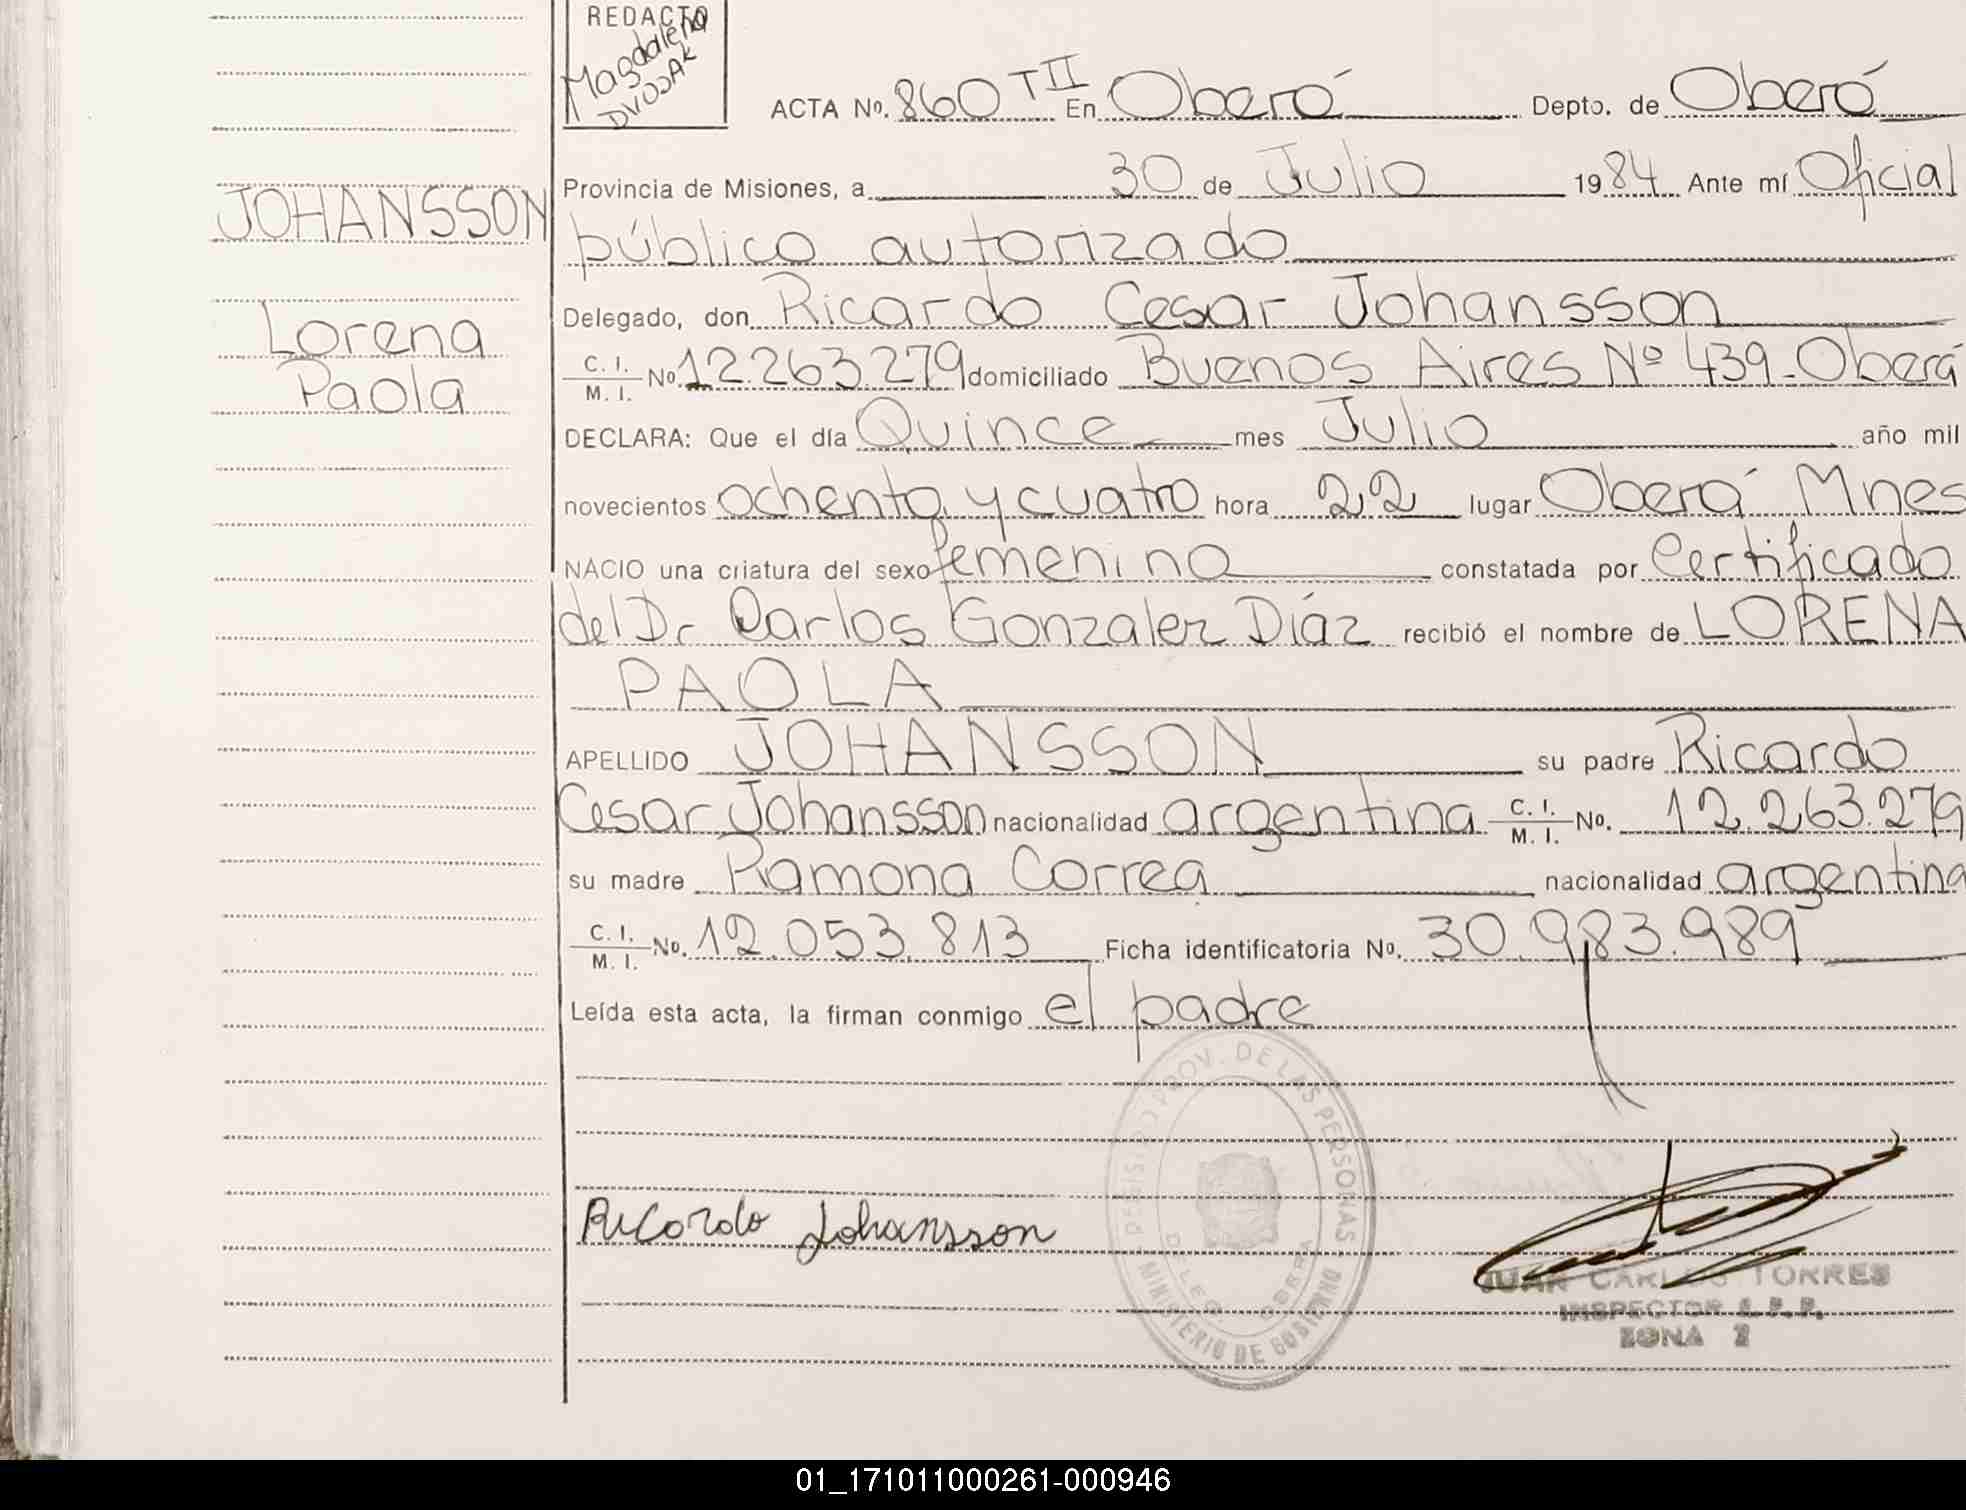 REDACTO
Magdalena
DVOJAK
ACTA No. 860 TII En Oberá Depto. de Oberá
Provincia de Misiones, a 30 de Julio 1984 Ante mí Oficial
público autorizado
JOHANSSON
Delegado, don Ricardo Cesar Johansson
Lorena
Paola
C. I. M. I. No. 12.263.279 domiciliado Buenos Aires Nº 439-Oberá
DECLARA: Que el día Quince mes Julio año mil
novecientos ochenta y cuatro hora 22 lugar Oberá Mnes
NACIO una criatura del sexo femenino constatada por Certificado
del Dr Carlos Gonzalez Díaz recibió el nombre de LORENA
PAOLA
APELLIDO JOHANSSON su padre Ricardo
Cesar Johansson nacionalidad argentina C. I. M. I. No. 12.263.279
su madre Ramona Correa nacionalidad argentina
C. I. M. I. No. 12.053.813 Ficha identificatoria No. 30.983.989
Leída esta acta, la firman conmigo el padre
REGISTRO PROV. DE LAS PERSONAS
MINISTERIO DE GOBIERNO
DELEG. OBERA
Ricardo Johansson
JUAN CARLOS TORRES
INSPECTOR R.P.P.
ZONA 2
01_171011000261-000946